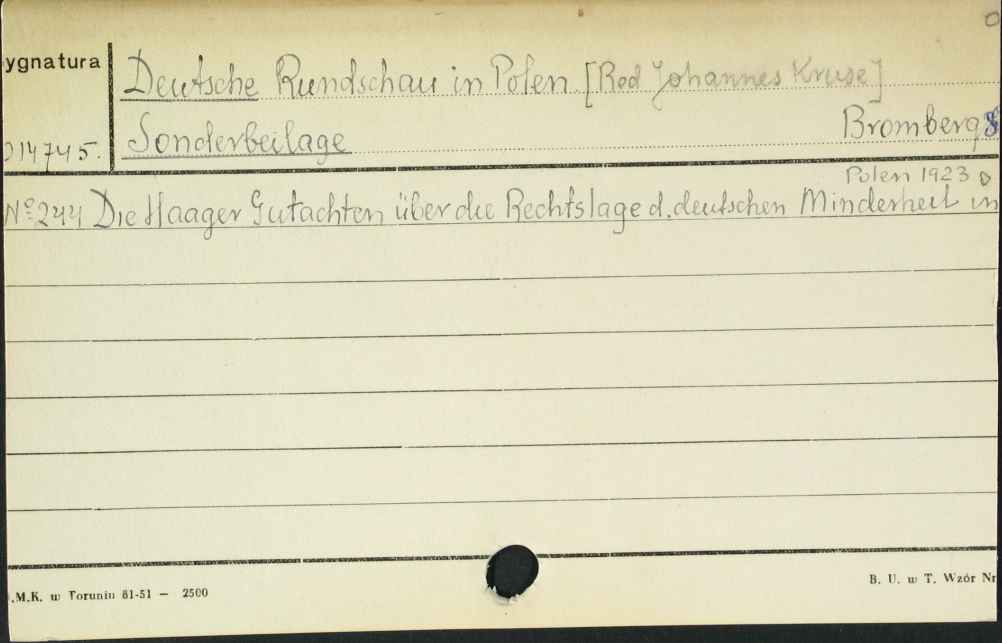 ygnatura
Deutsche Rundschau in Polen [Red Johannes Kruse]
Sonderbeilage Bromberg
014745.
Polen 1923
Nº 244 Die Haager Gutachten über die Rechtslage d. deutschen Minderheit in
.M.K. w Toruniu 81-51 — 2500
B. U. w T. Wzór Nr